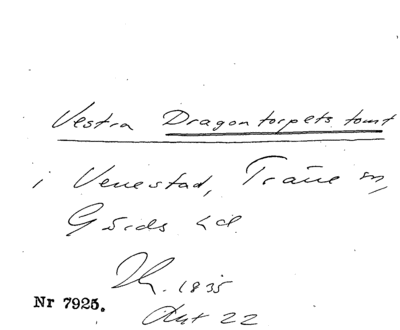 Vestra Dragontorpets tomt
i Venestad, Träne sn,
Gärds hd.
1835
Nr 7925.
Akt 22